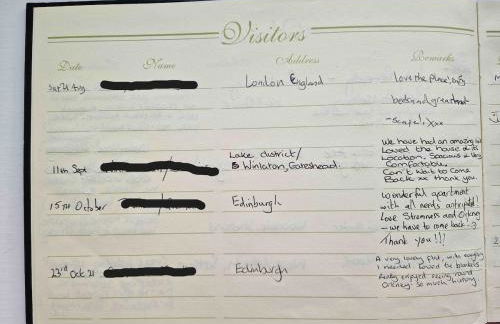 Visitors
Date Name Address Remarks
London England Love the place, comfy
beds and great
- scape!, xxx
11th Sept Lake district/
Winlaton, Gateshead.
We have had an amazing
Loved the house & its
Location, Spacious & Very
Comfortable,
Can't Wait to Come
Back xx thank you.
15th October Edinburgh
Wonderful apartment
with all needs anticipated!
Love Stromness and Orkney
- we have to come back! :)
Thank you!!!
23rd Oct 21 Edinburgh
A very lovely flat, with everything
I needed. Loved the blankets.
Really enjoyed seeing round
Orkney. So much history.